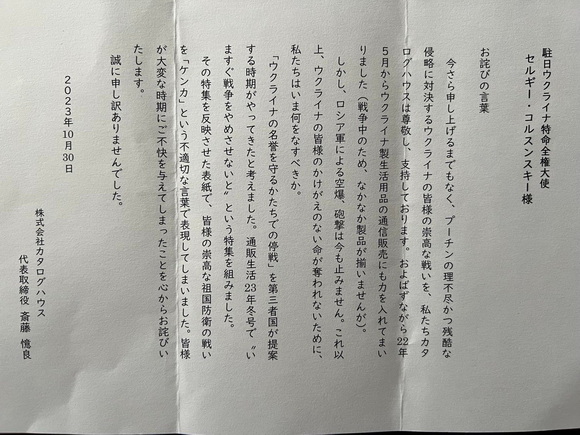 駐日ウクライナ特命全権大使
セルギー・コルスンスキー様
お詫びの言葉
今さら申し上げるまでもなく、プーチンの理不尽かつ残酷な
侵略に対決するウクライナの皆様の崇高な戦いを、私たちカタ
ログハウスは尊敬し、支持しております。およばずながら22年
5月からウクライナ製生活用品の通信販売にも力を入れてまい
りました（戦争中のため、なかなか製品が揃いませんが）。
しかし、ロシア軍による空爆、砲撃は今も止みません。これ以
上、ウクライナの皆様のかけがえのない命が奪われないために、
私たちはいま何をなすべきか。
「ウクライナの名誉を守るかたちでの停戦」を第三者国が提案
する時期がやってきたと考えました。通販生活23年冬号で〝い
ますぐ戦争をやめさせないと〟という特集を組みました。
その特集を反映させた表紙で、皆様の崇高な祖国防衛の戦い
を「ケンカ」という不適切な言葉で表現してしまいました。皆様
が大変な時期にご不快を与えてしまったことを心からお詫びい
たします。
誠に申し訳ありませんでした。
2023年10月30日
株式会社カタログハウス
代表取締役 斎藤 憶良